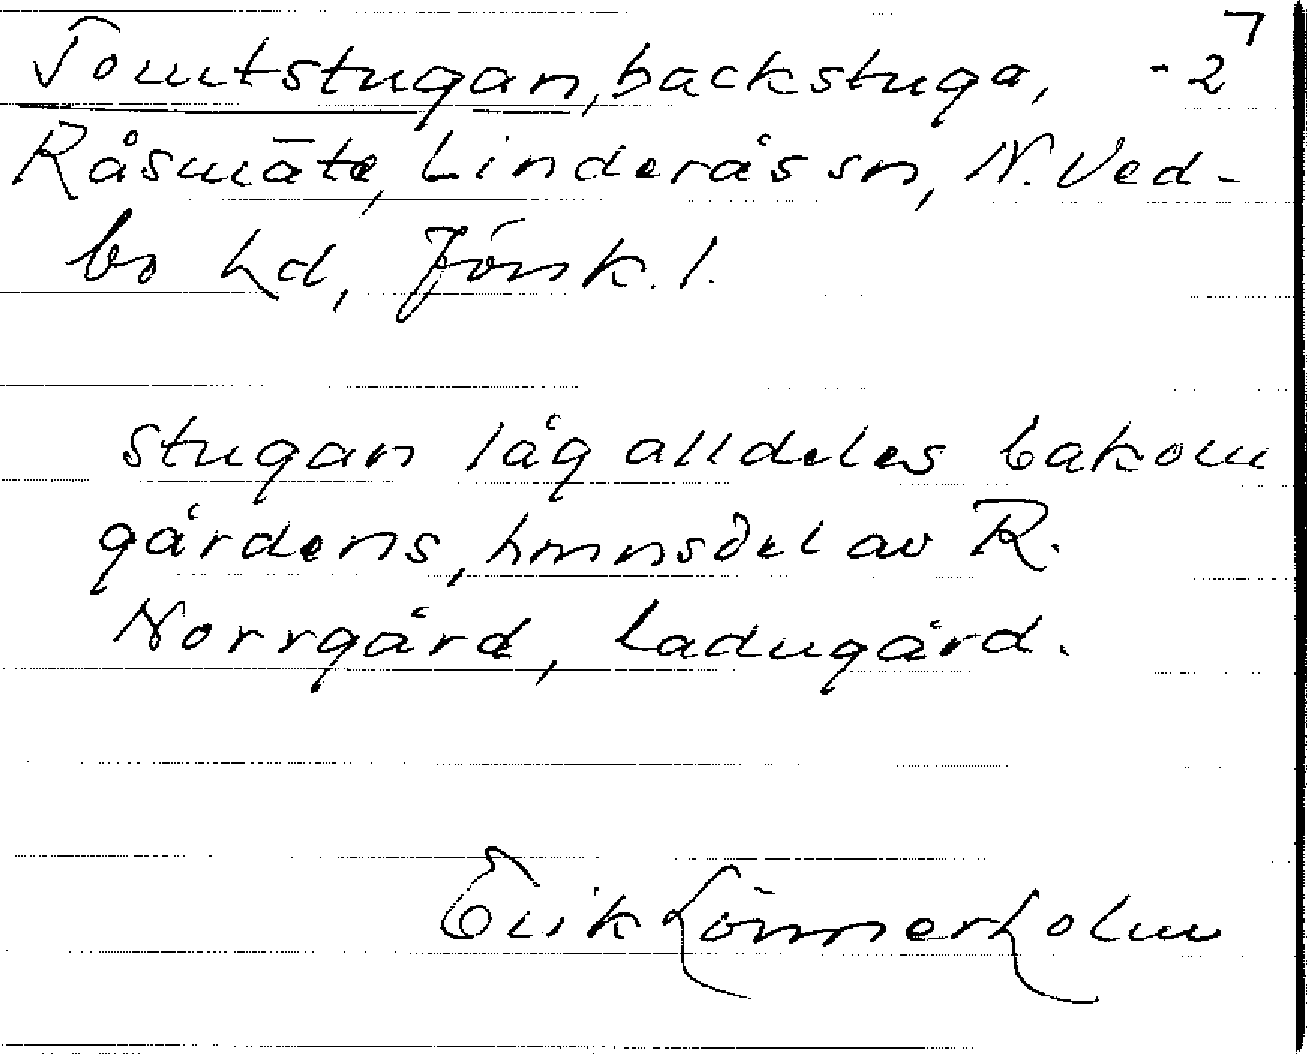 Tomtstugan, backstuga, -2
Råsmäte, Linderås sn, N. Ved-
bo hd, Jönk. l.
Stugan låg alldeles bakom
gårdens, hmnsdel av R.
Norrgård, ladugård.
Erik Lönnerholm